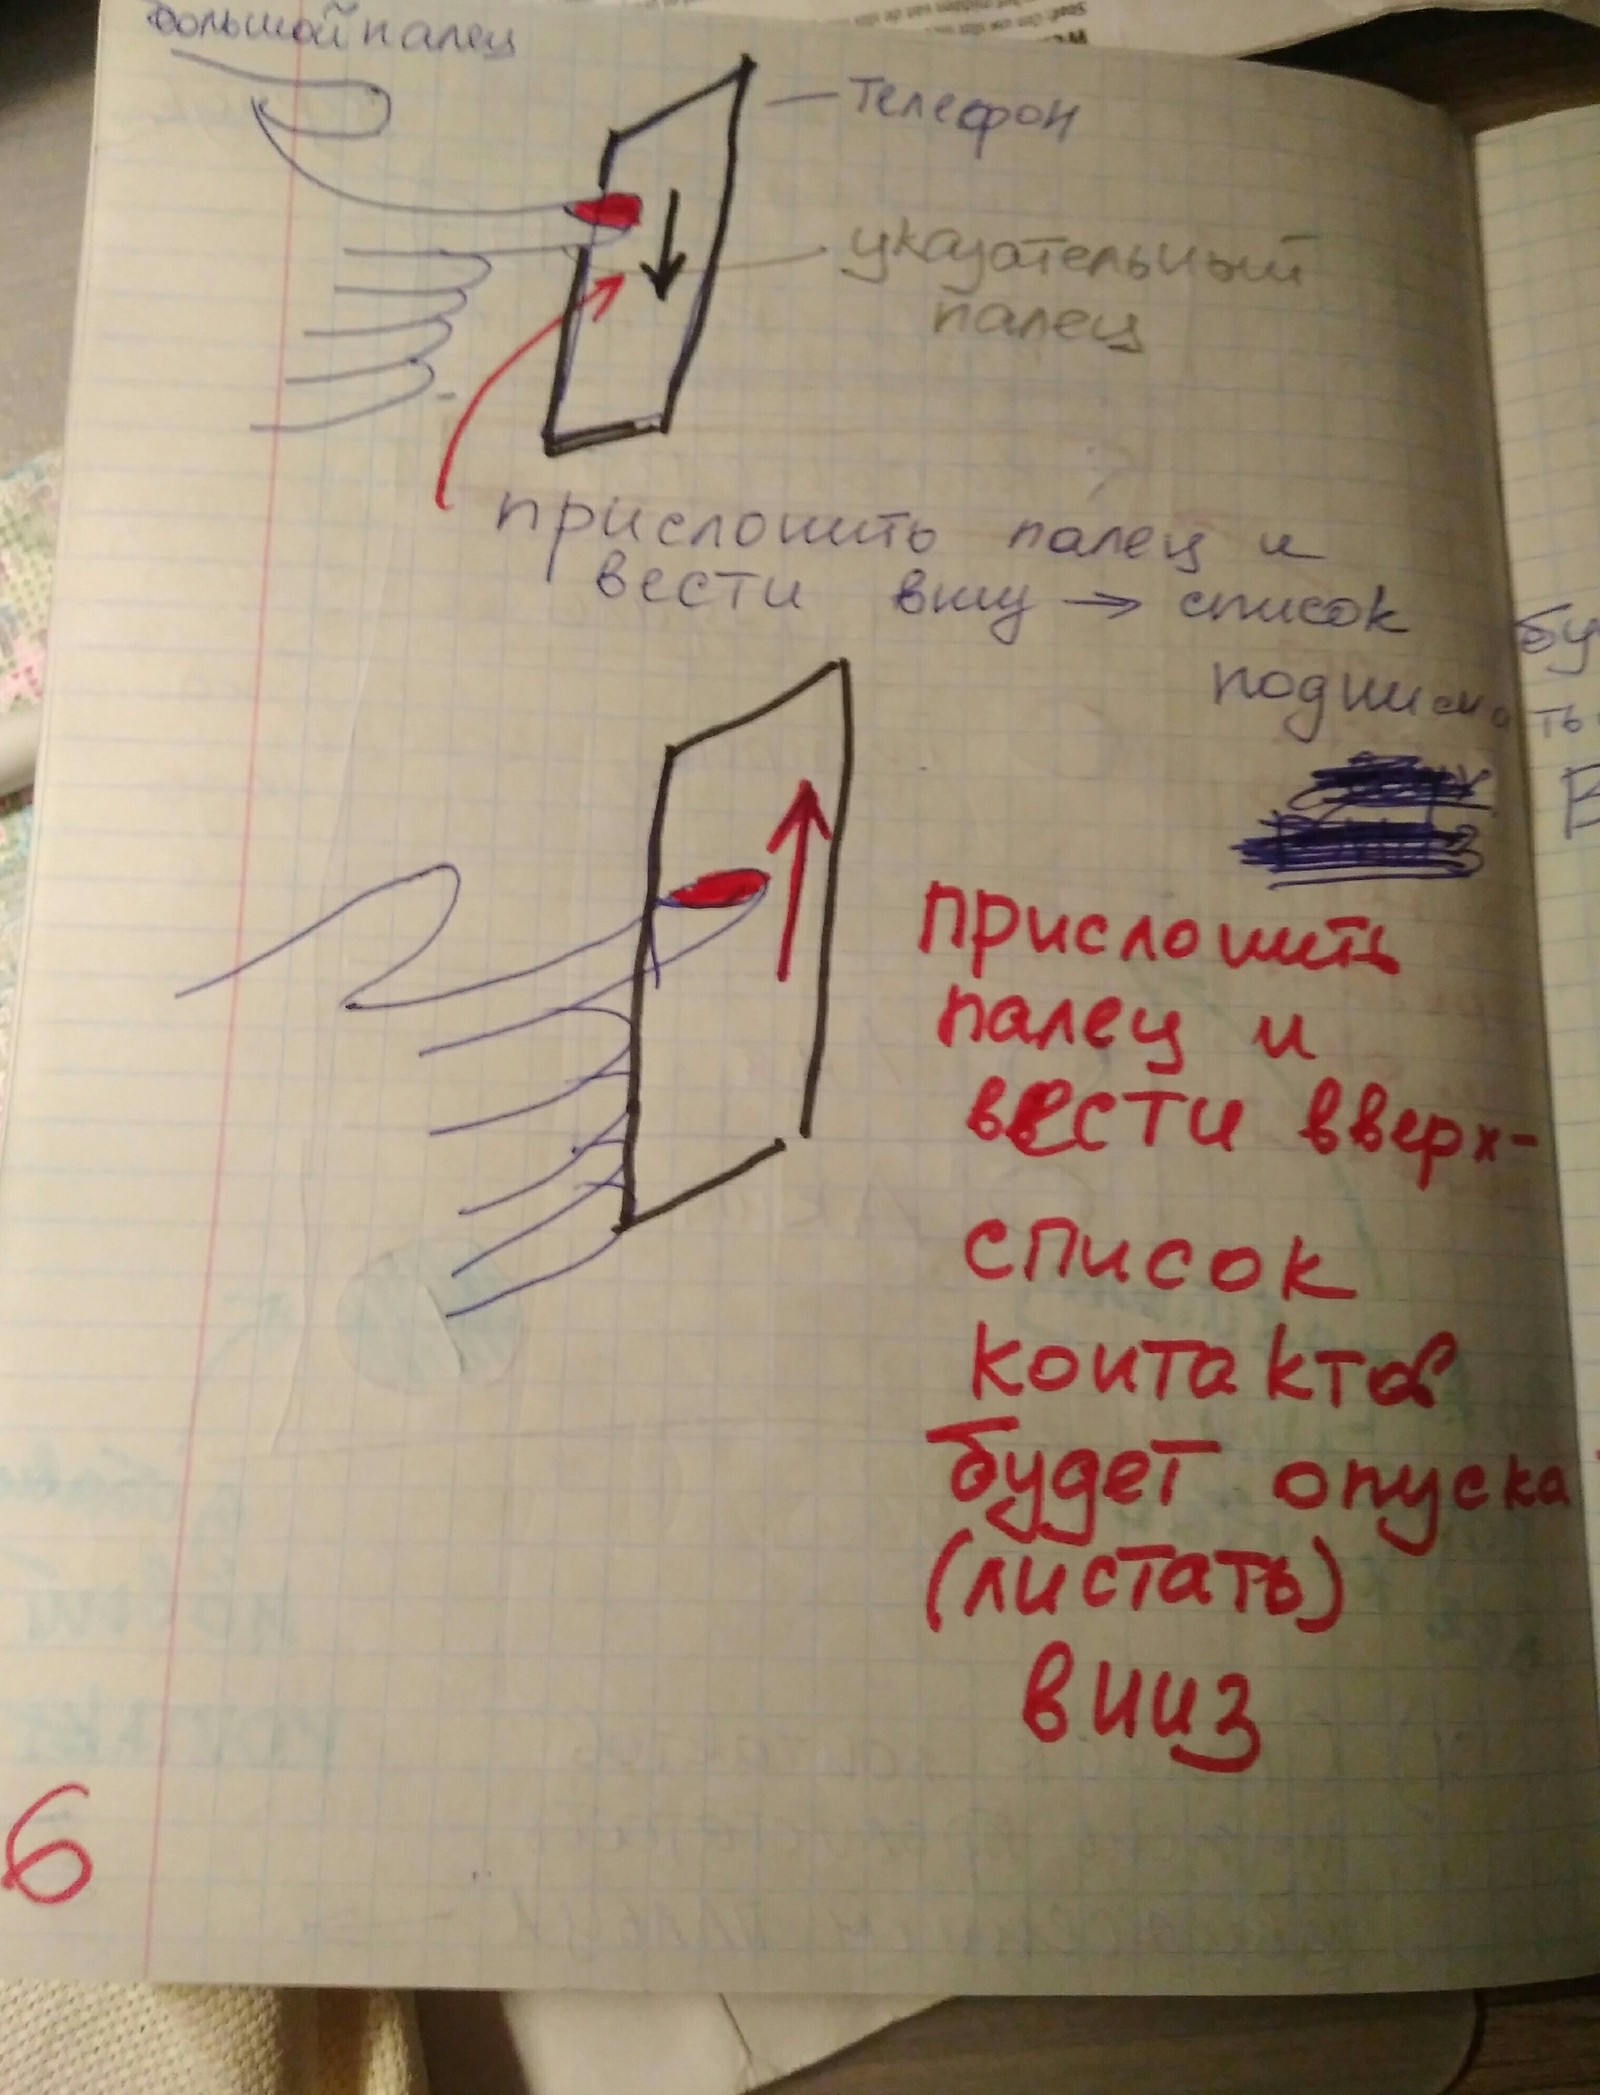 большой палец
Телефон
указательный
палец
прислонить палец и
вести вниз → список
подни
прислонить
палец и
вести вверх-
список
контактов
будет опуска
(листать)
вниз
6